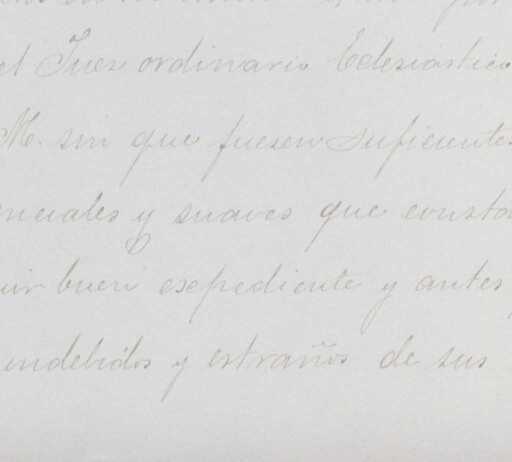 el Juez ordinario Eclesiástico
M. sin que fuesen suficientes
enciales y suaves que consta
uir buen expediente y antes
indebidos y estraños de sus